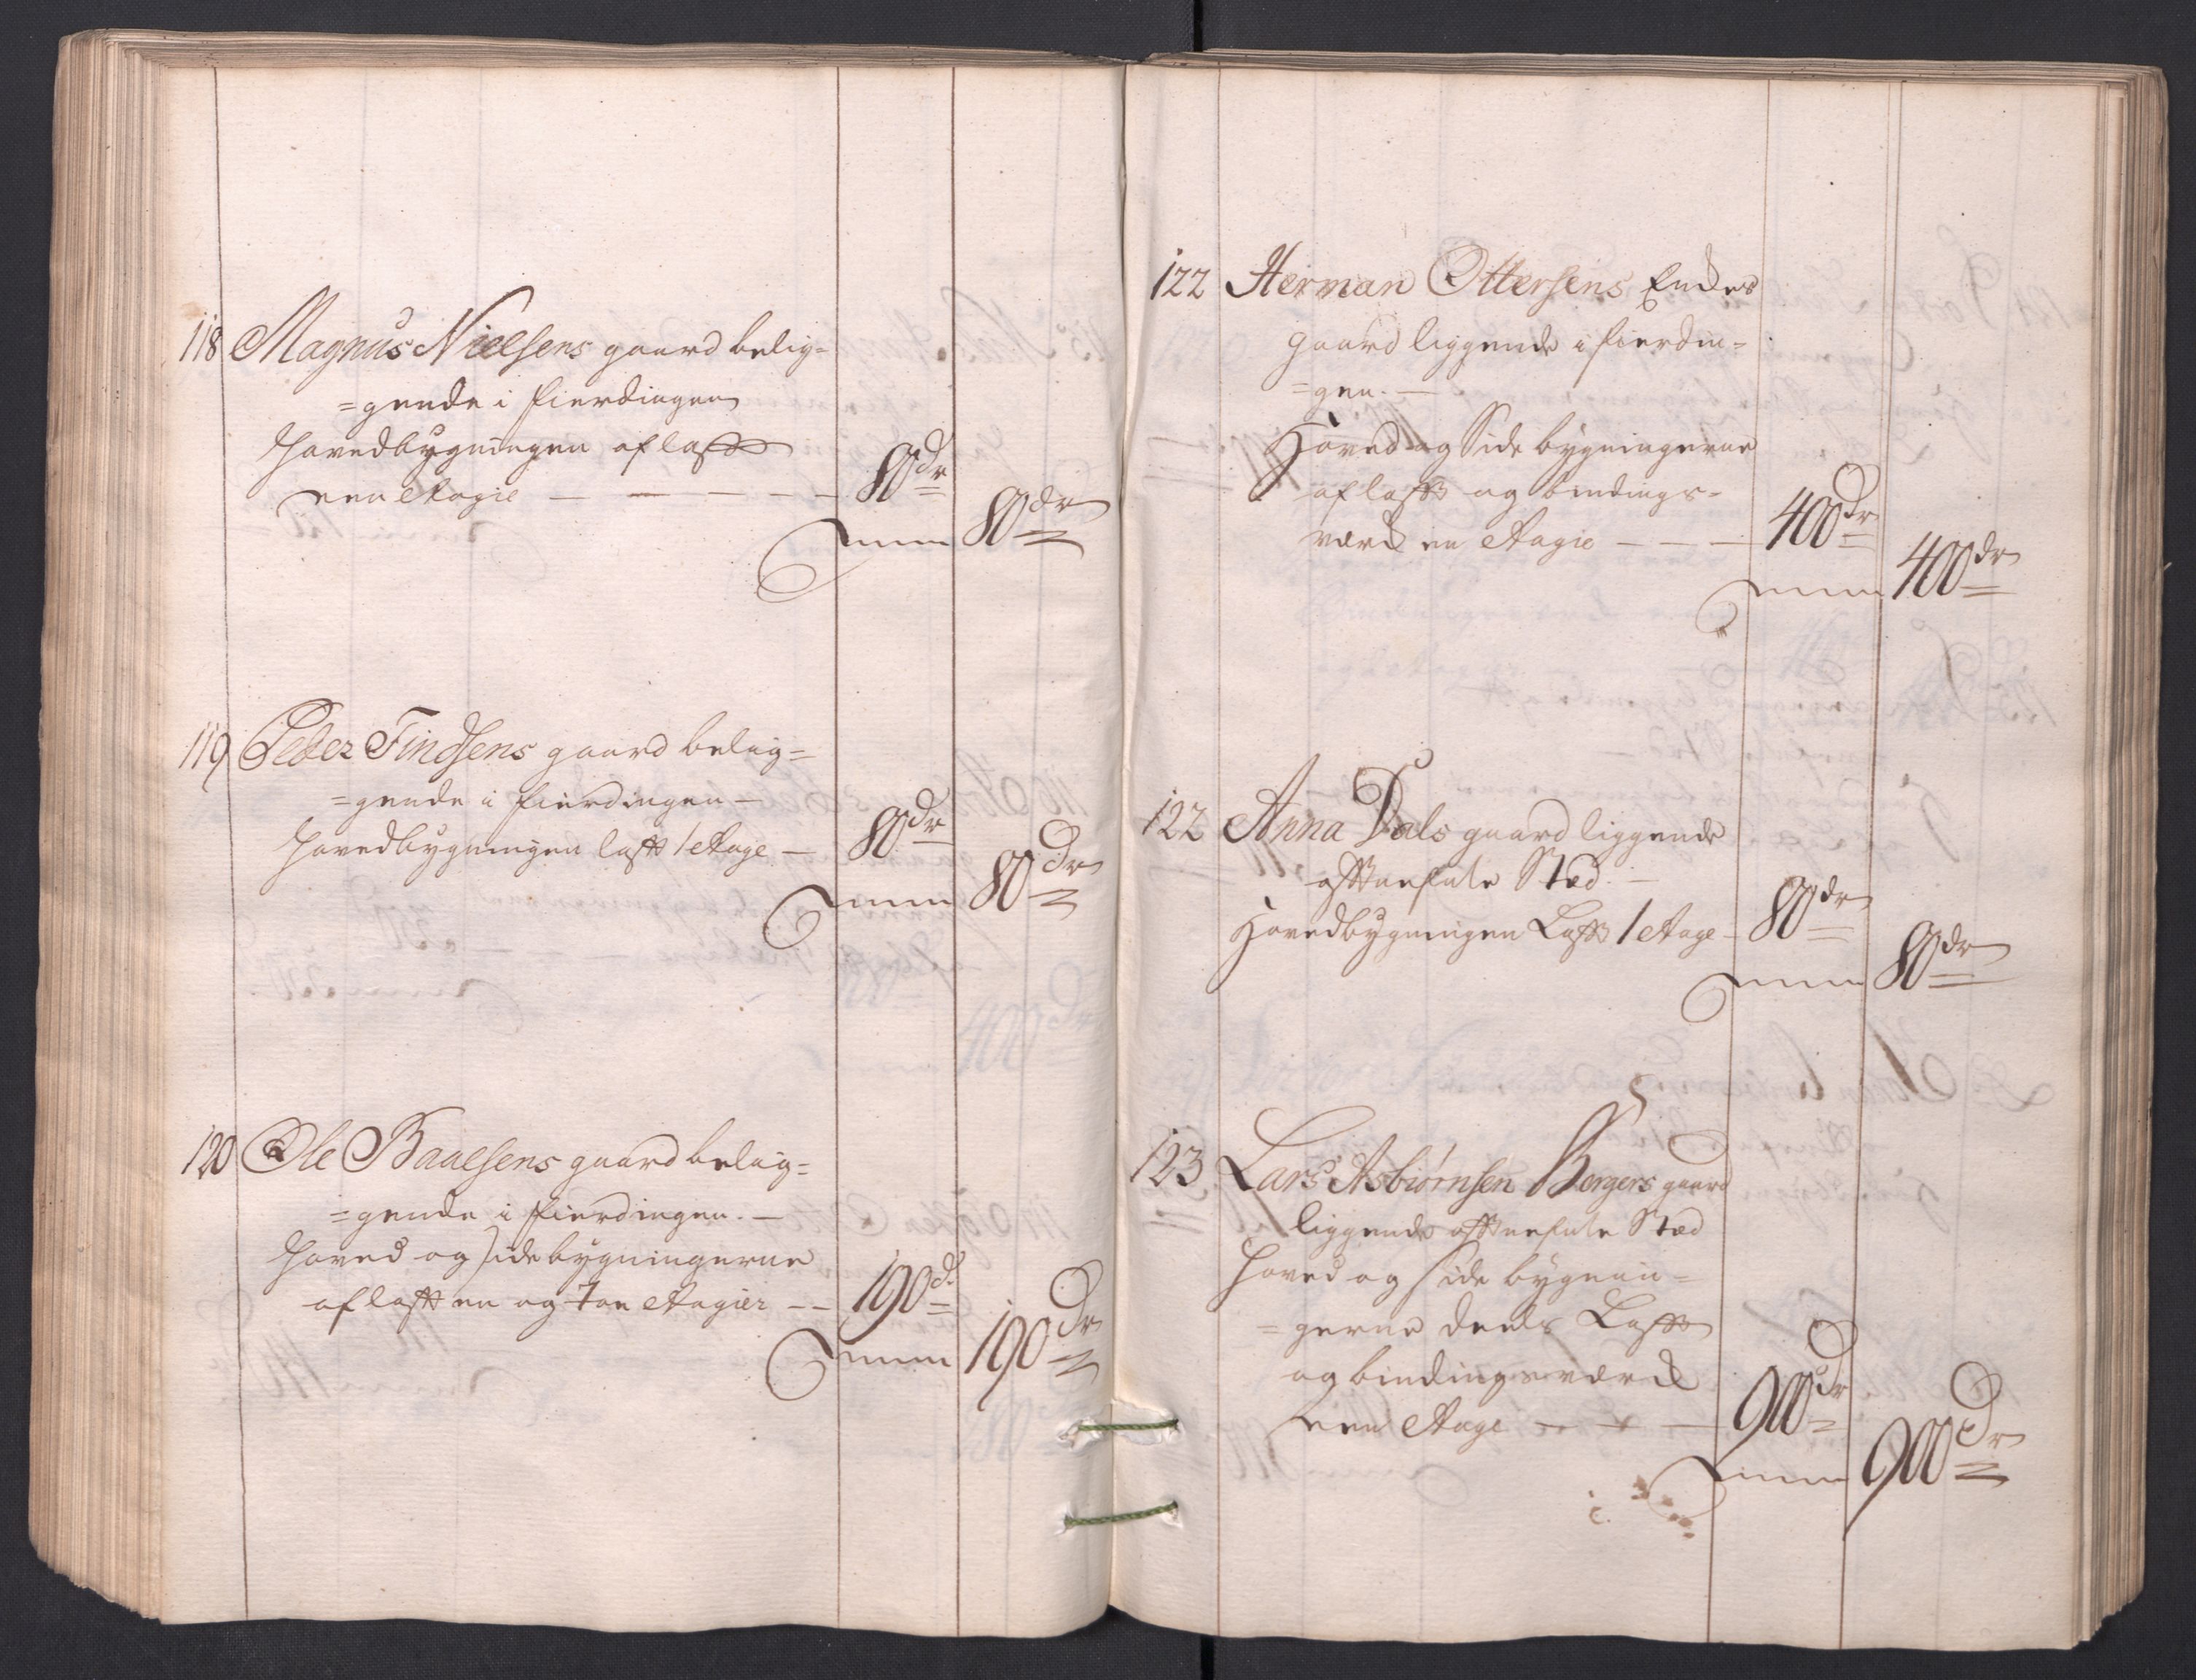 118 Magnus Nielsens gaard belig=
=gende i fierdingen
Hovedbygningen af laft
een Etagie — — — — — 80 dr
Summa 80 dr
119 Peder Findsens gaard belig=
=gende i fierdingen —
Hovedbygningen laft 1 Etage — 80 dr
Summa 80 dr
120 Ole Baaesens gaard belig=
=gende i fierdingen. —
Hoved og Sidebygningerne
af laft en og toe Etagier — — 190 d.
Summa 190 dr
122 Herman Ottersens Enckes
gaard liggende i fierdin=
=gen. —
Hoved og Side bygningerne
af laft og bindings=
værck en Etagie — — — 400 dr
Summa 400 dr
122 Anna Dals gaard liggende
Stæd. —
Hovedbygningen Laft 1 Etage — 80 dr
Summa 80 dr
123 Lars Asbiørnsen Bergers gaard
liggende Stæd
Hoved og Side bygnin=
=gerne deels Laft
og bindingsværck
een Etage — — — 900 dr
Summa 900 dr